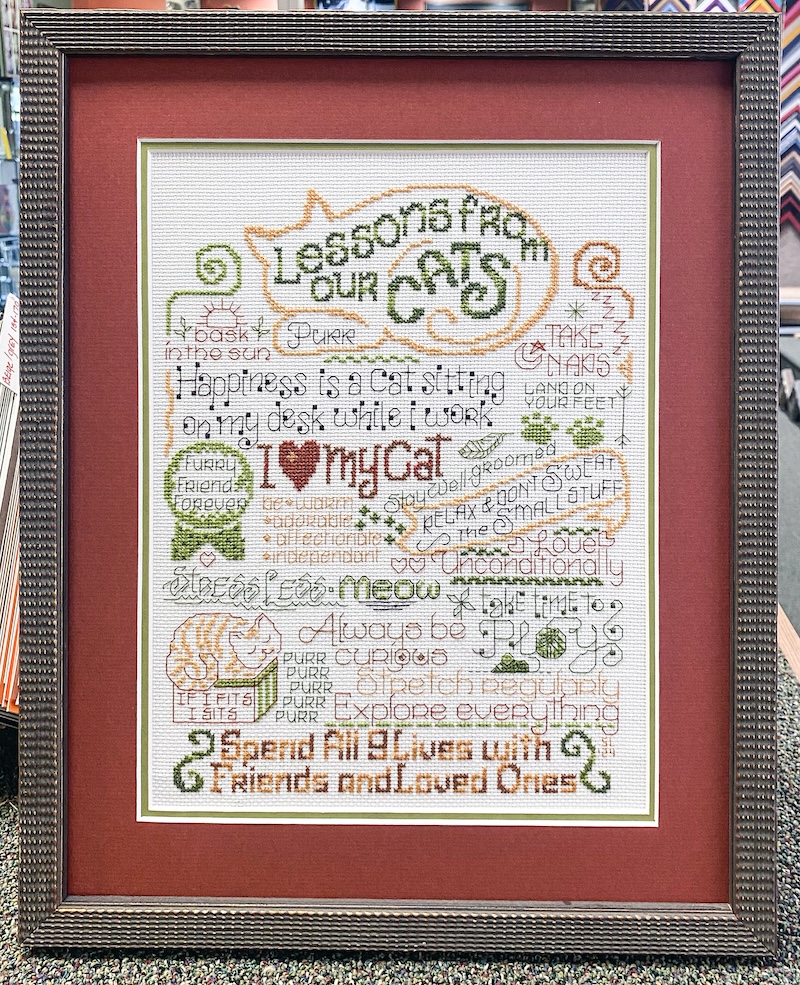 Lessons from
our CATS
Purr
bask
in the sun
TAKE
NAPS
ZZZZZ
Happiness is a cat sitting
on my desk while i work
LAND ON
YOUR FEET
I my Cat
FURRY
Friend
Forever
Stay well groomed
RELAX & DONT SWEAT
the SMALL STUFF
be • warm
• adorable
• affectionate
• independant
Love
Unconditionally
Stress Less
meow
take time to
PLAY
Always be
curious
IF I FITS
I SITS
PURR
PURR
PURR
PURR
PURR
Stretch regularly
Explore everything
Spend All 9 Lives with
Friends and Loved Ones